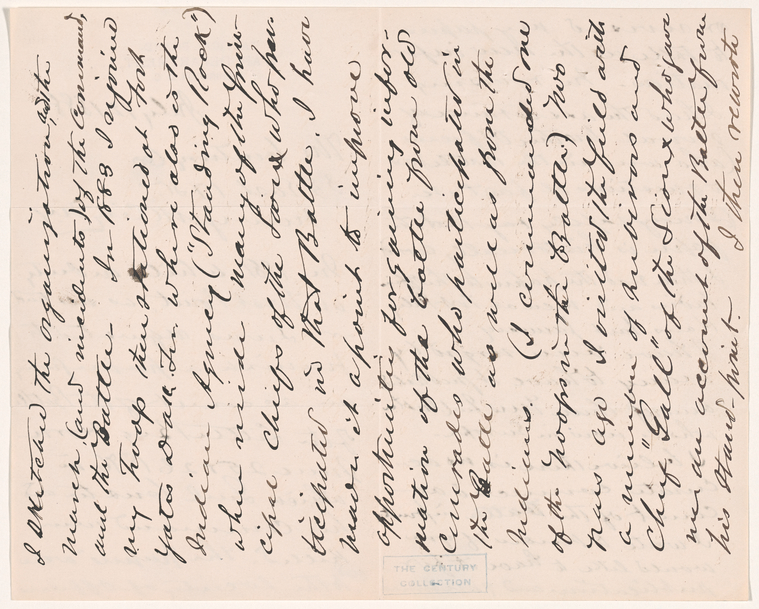 I sketched the organization, and the
march (and incidents) of the Command,
and the Battle - In 1883 I rejoined
my troop then stationed at Fort
Yates Dak. Ter. where also is the
Indian Agency ("Standing Rock")
where reside many of the prin-
cipal chiefs of the Sioux who par-
ticipated in that Battle. I have
made it a point to improve
opportunities for gaining infor-
mation of the battle from old
Comrades who participated in
the Battle as well as from the
Indians. (I commanded one
of the troops in the Battle.) Two
years ago I visited the field with
a number of survivors and
Chief "Gall" of the Sioux who gave
me an account of the Battle from
his stand-point. I then rewrote
THE CENTURY
COLLECTION